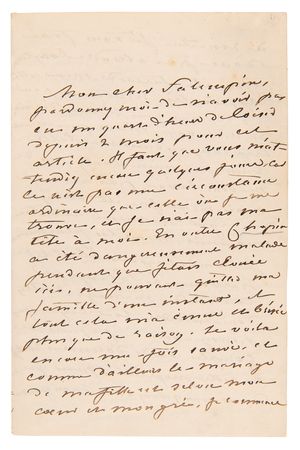 Mon cher
pardonnez moi de n'avoir pas
eu un quart d'heure de loisir
depuis 2 mois pour cet
article. Il faut que vous m'at
tendiez encore quelques jours, car
ce n'est pas une circonstance
ordinaire que celle où je me
trouve, et je n'ai pas ma
tête à moi. En outre Chopin
a été dangereusement malade
pendant que j'étais clouée
ici, ne pouvant quitter ma
famille d'un instant, et
tout cela m'a émue et brisée
plus que de raison. Le voilà
encore une fois sauvé, et
comme d'ailleurs le mariage
de ma fille est selon mon
cœur et mon gré, je commence